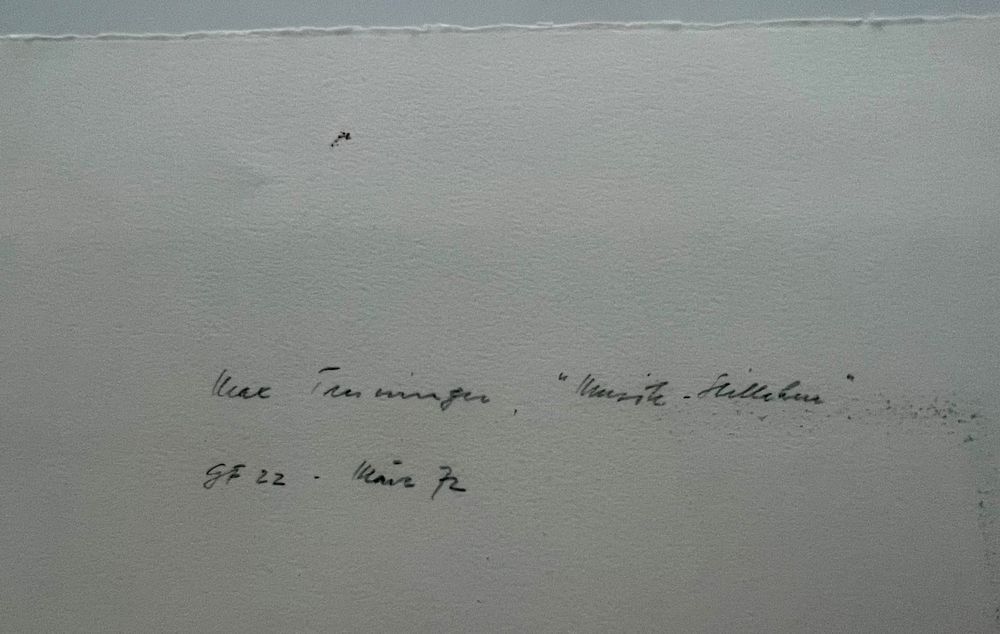 Max , "Musik-Stilleben"
GF 22 - März 72